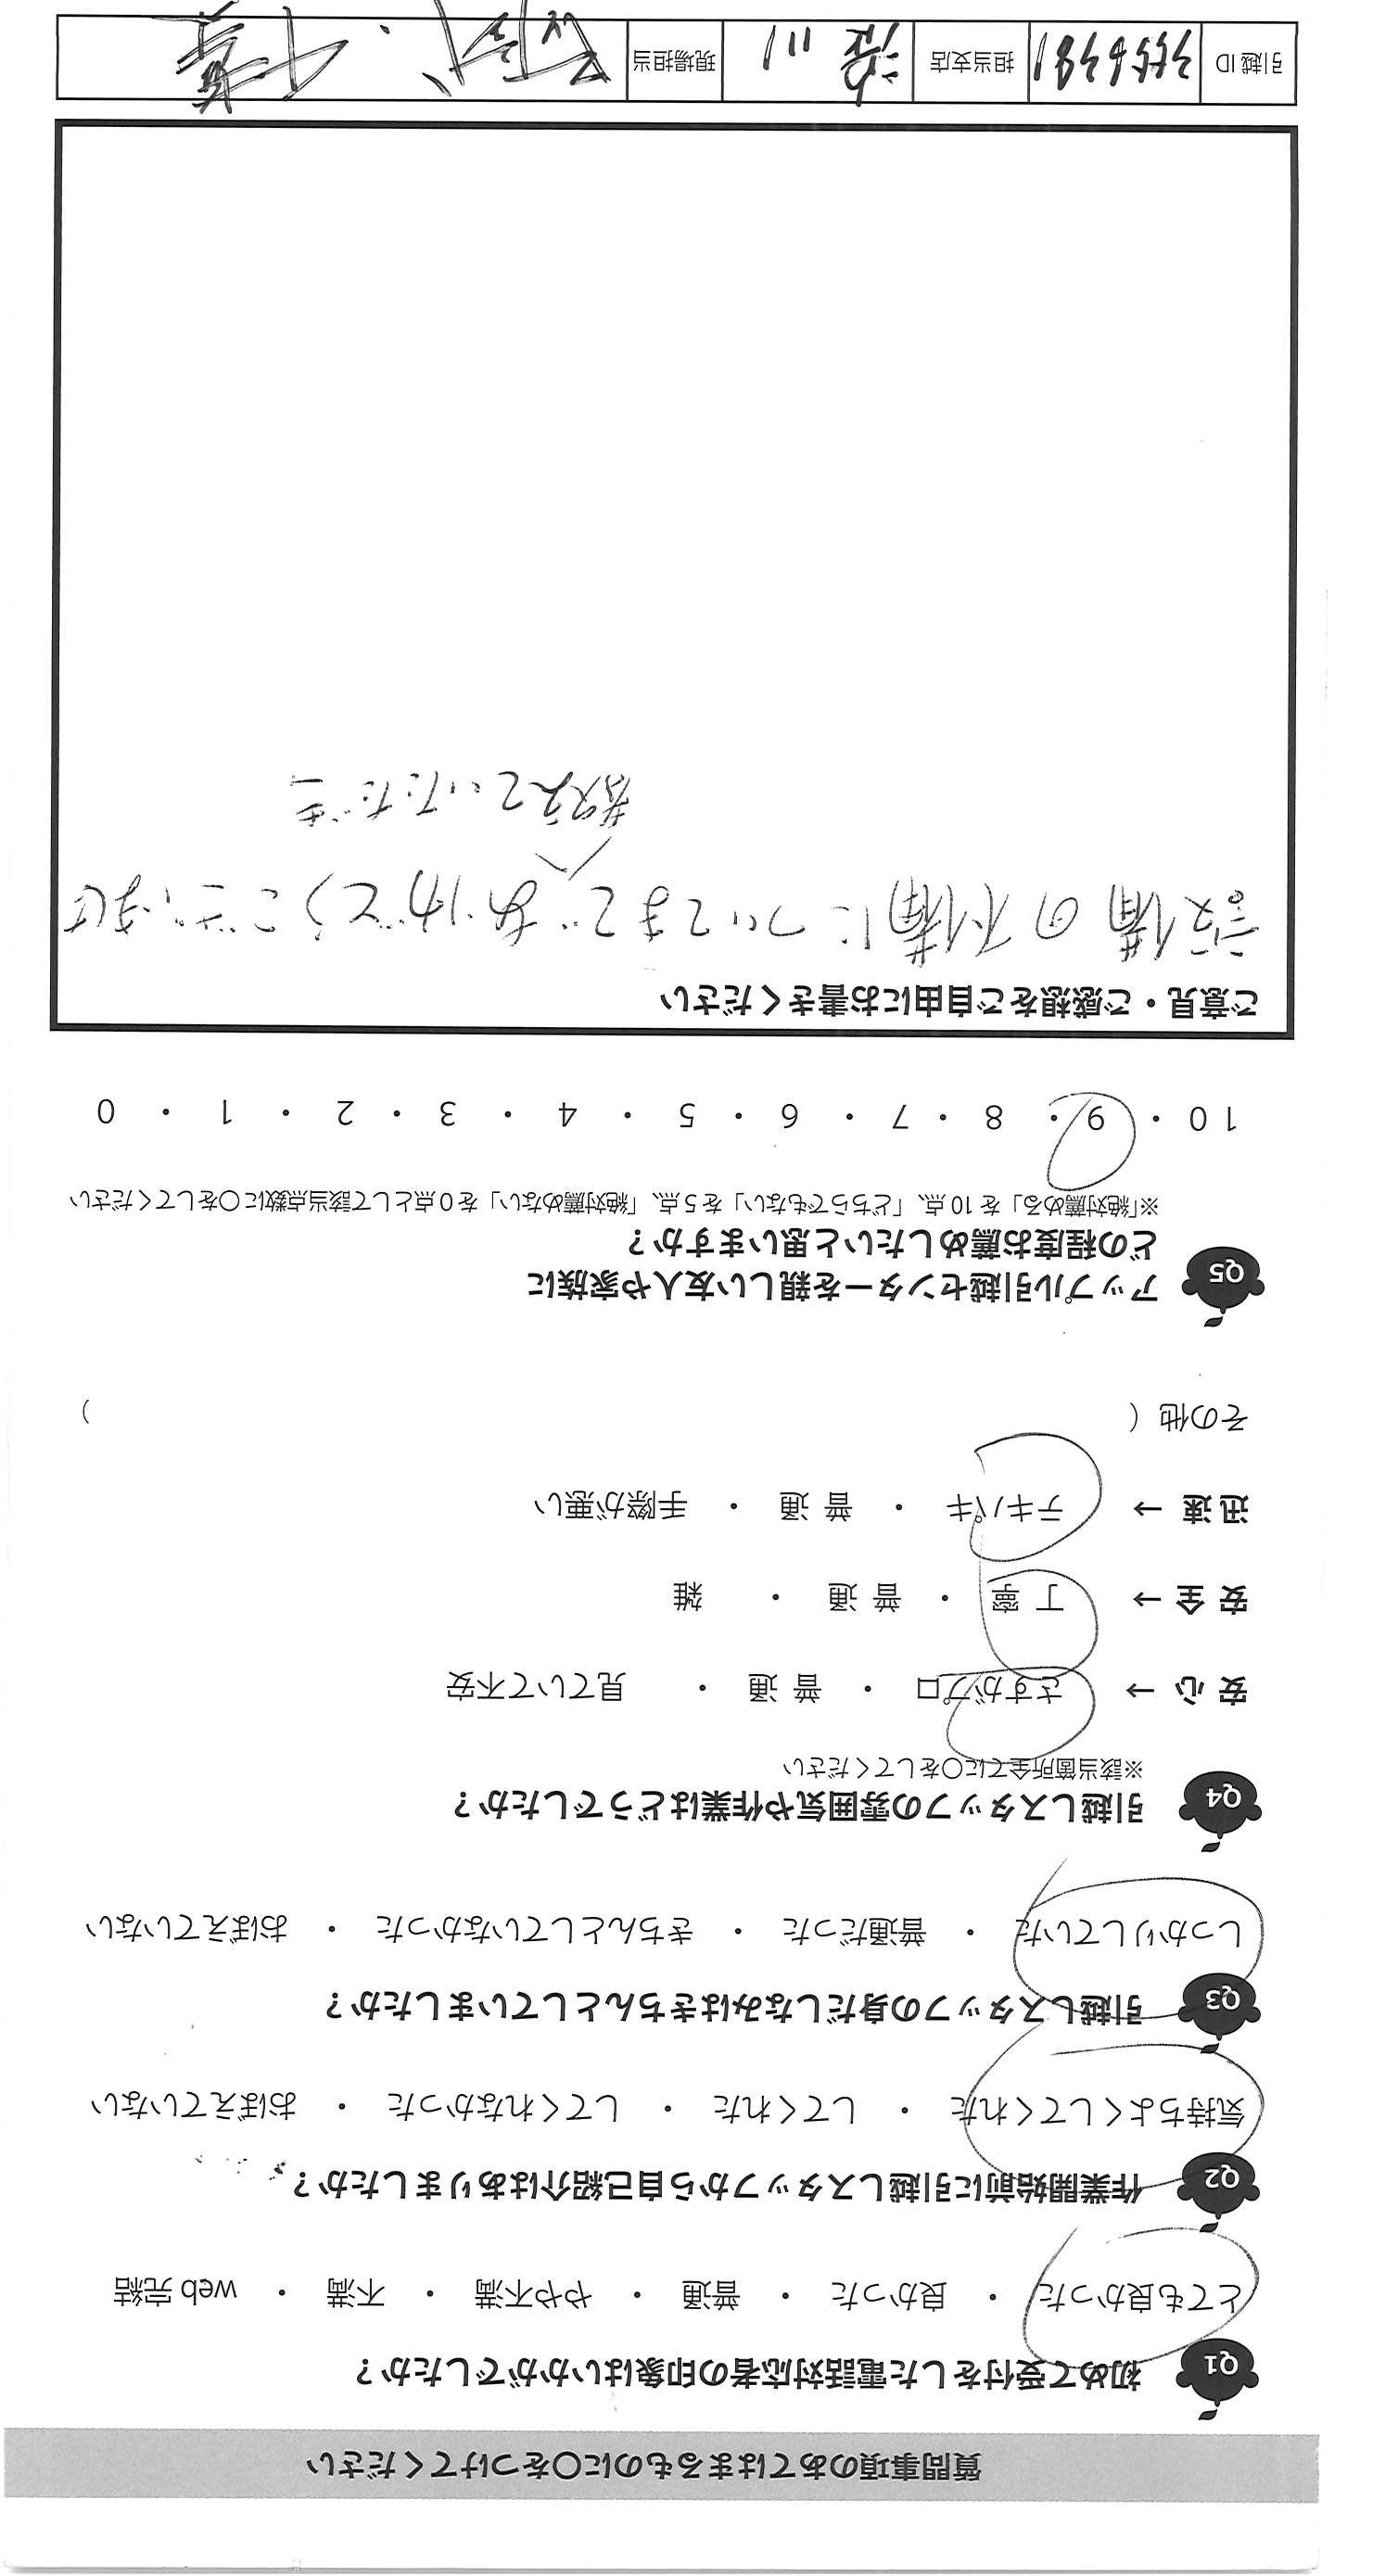 質問事項のあてはまるものに〇をつけてください
Q1 初めて受付をした電話対応者の印象はいかがでしたか？
とても良かった ・ 良かった ・ 普通 ・ やや不満 ・ 不満 ・ web 完結
Q2 作業開始前に引越しスタッフから自己紹介はありましたか？
気持ちよくしてくれた ・ してくれた ・ してくれなかった ・ おぼえていない
Q3 引越しスタッフの身だしなみはきちんとしていましたか？
しっかりしていた ・ 普通だった ・ きちんとしていなかった ・ おぼえていない
Q4 引越しスタッフの雰囲気や作業はどうでしたか？
※該当箇所全てに〇をしてください
安 心 → さすがプロ ・ 普 通 ・ 見ていて不安
安 全 → 丁 寧 ・ 普 通 ・ 雑
迅 速 → テキパキ ・ 普 通 ・ 手際が悪い
その他（ ）
Q5 アップル引越センターを親しい友人や家族に
どの程度お薦めしたいと思いますか？
※「絶対薦める」を 10 点、「どちらでもない」を 5 点、「絶対薦めない」を 0 点として該当点数に〇をしてください
10 ・ 9 ・ 8 ・ 7 ・ 6 ・ 5 ・ 4 ・ 3 ・ 2 ・ 1 ・ 0
ご意見・ご感想をご自由にお書きください
設備の不備についてまで ありがとうございました
教えていただき
引越 ID 担当支店 現場担当